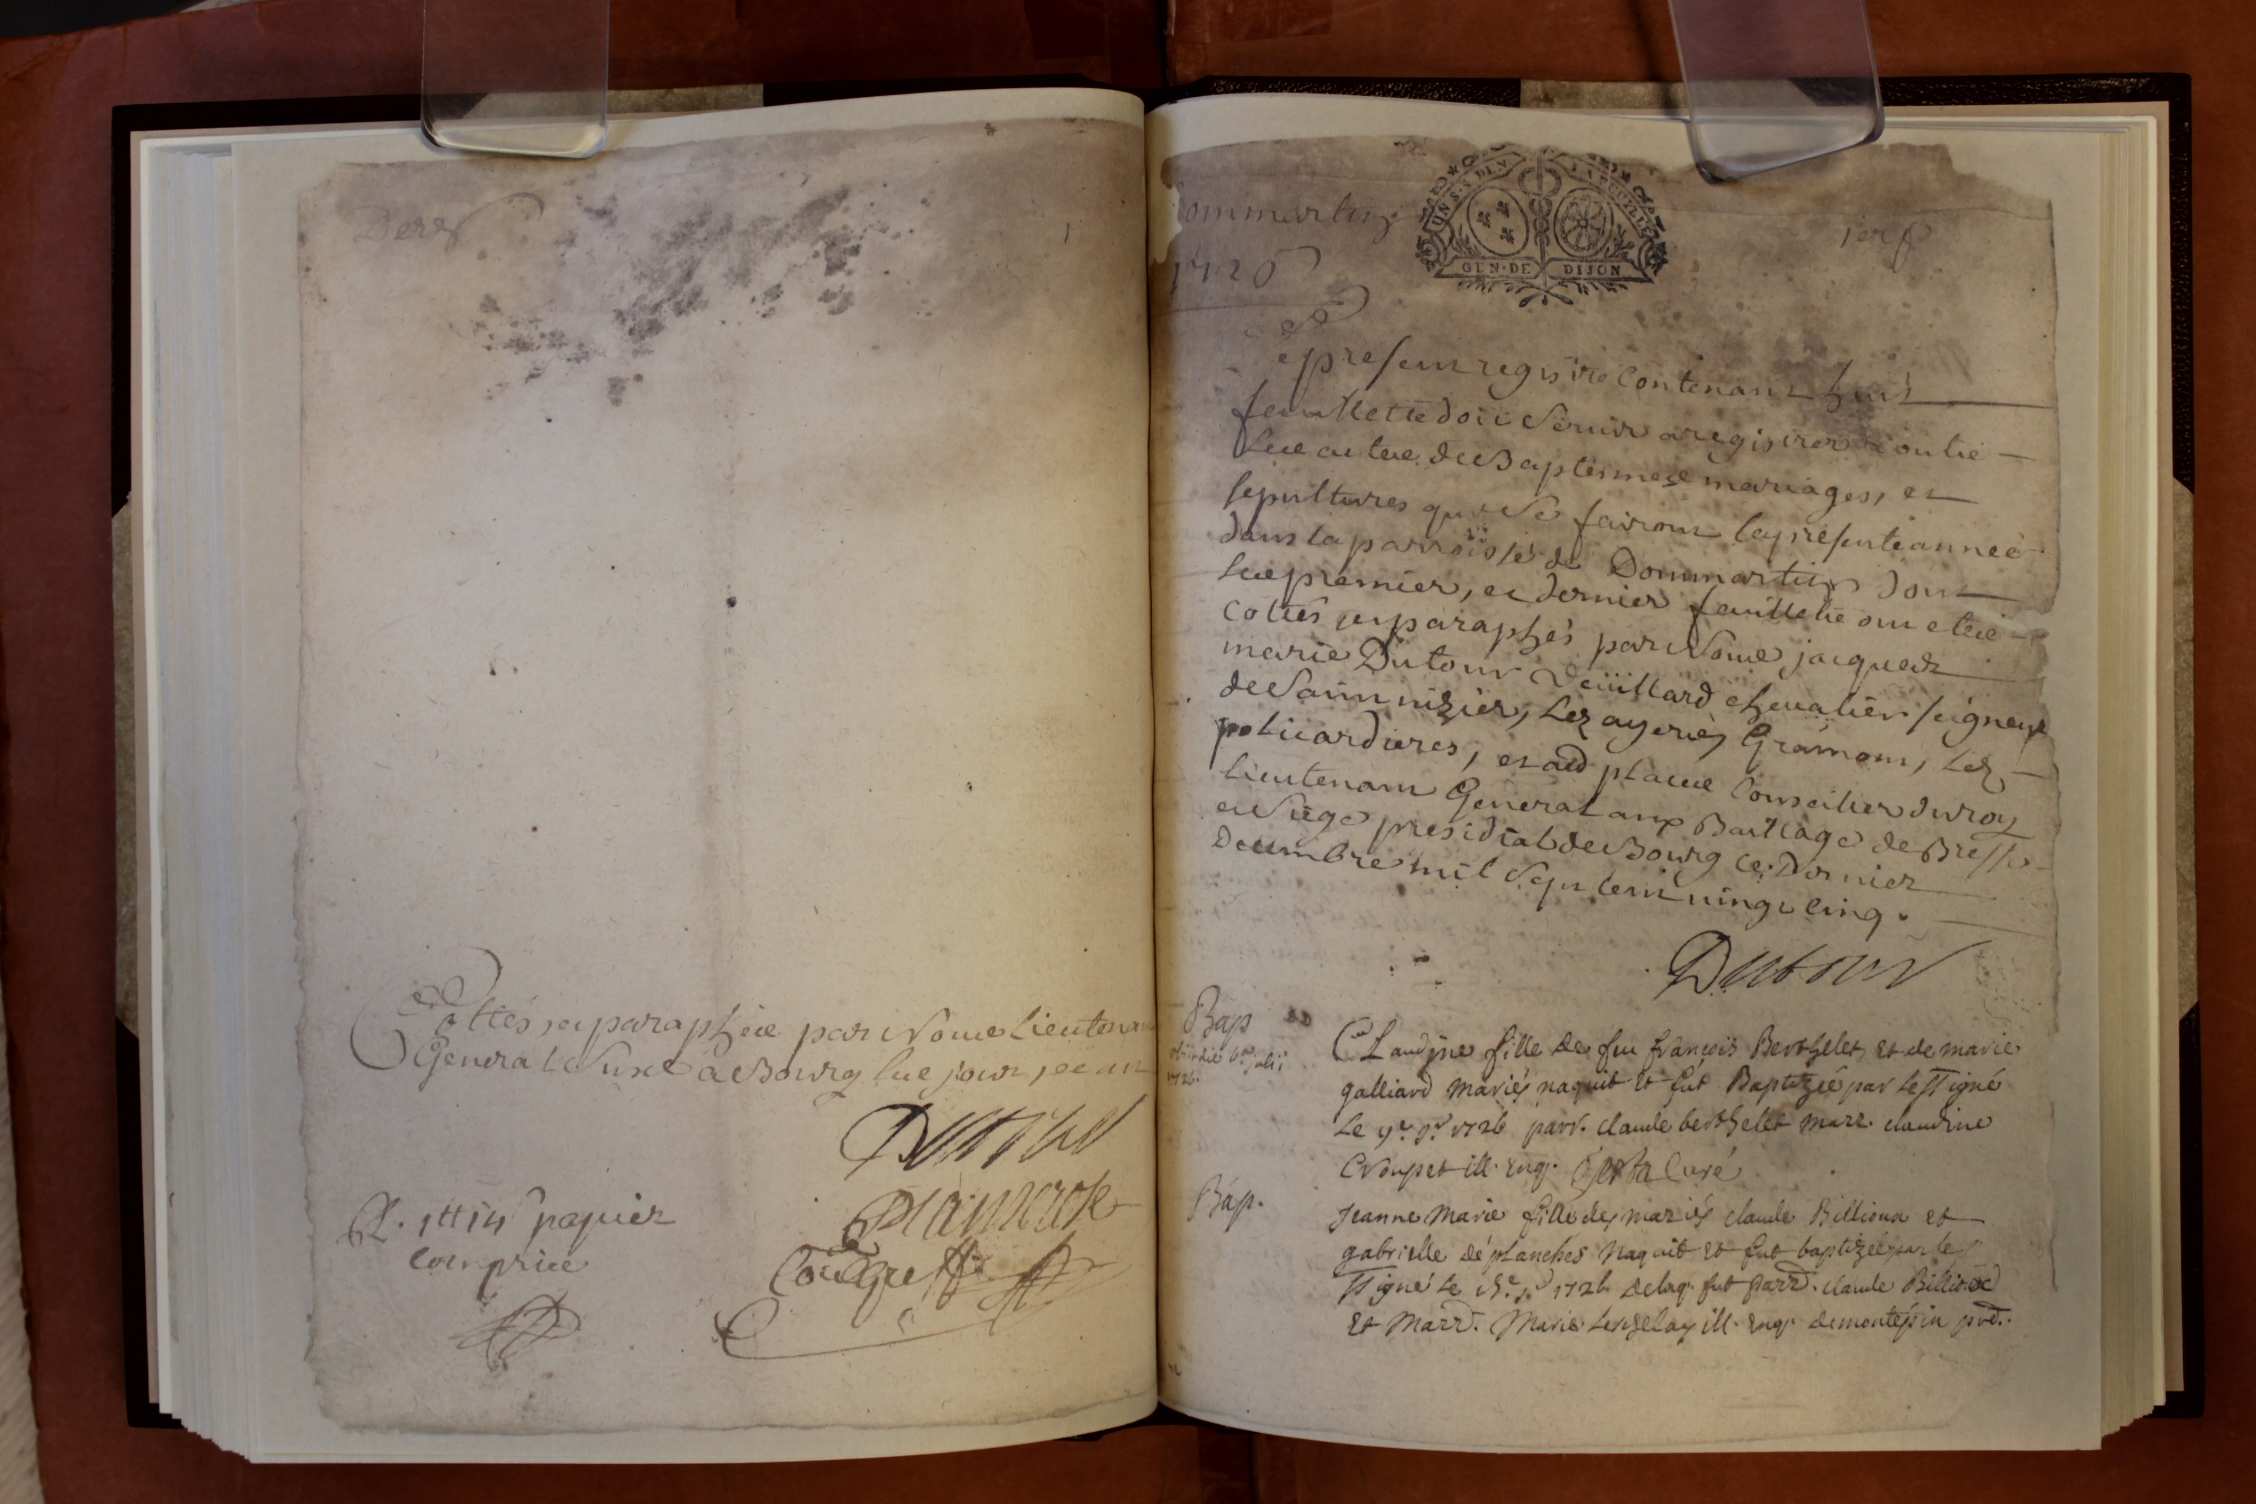 Der
1
Cottés, et paraphée par Nous Lieutenan
General Susd a Bourg lue jour, et an
Dutour
R. 1tt 14s papier
comprice
ommartin
1726
GEN·DE DIJON
1er f
Le present registre Contenant huit
feuillette doit Servir a registrer toutte
Lue actue de Baptesmese mariages, et
sepultures qui Se fairont la presente anneé
dans la parroisse de Dommartin dont
Lue premier, et dernier feuillette ont eteé
cottés et paraphés par Nous jacques
marie Dutour Deüillard chevalier seigneur
de Saint nizier, Lez ayeries Gramont, Lez
policardieres, et aud place Conseiller du roy
Lieutenant General aux Bailliage de Bresse
et Siege presidial de Bourg ce Dernier
Decembre mil Sept cent vingt cinq.
Dutour
Bap
1726.
Claudine fille de feu françois Berthelet, et de marie
galliard mariés naquit et fut Baptizée par le ssigné
Le 9e 9r 1726 parr. claude berthelet marr. claudine
Croupet ill. enq. Curé
Bap.
Jeanne Marie fille des mariés claude Billioud et
gabrielle déplanches Naquit et fut baptizée par le
ssigné le 1726 delaq. fut parr. claude Billioud
et Marr. Marie ill. enq. de montépin pnt.